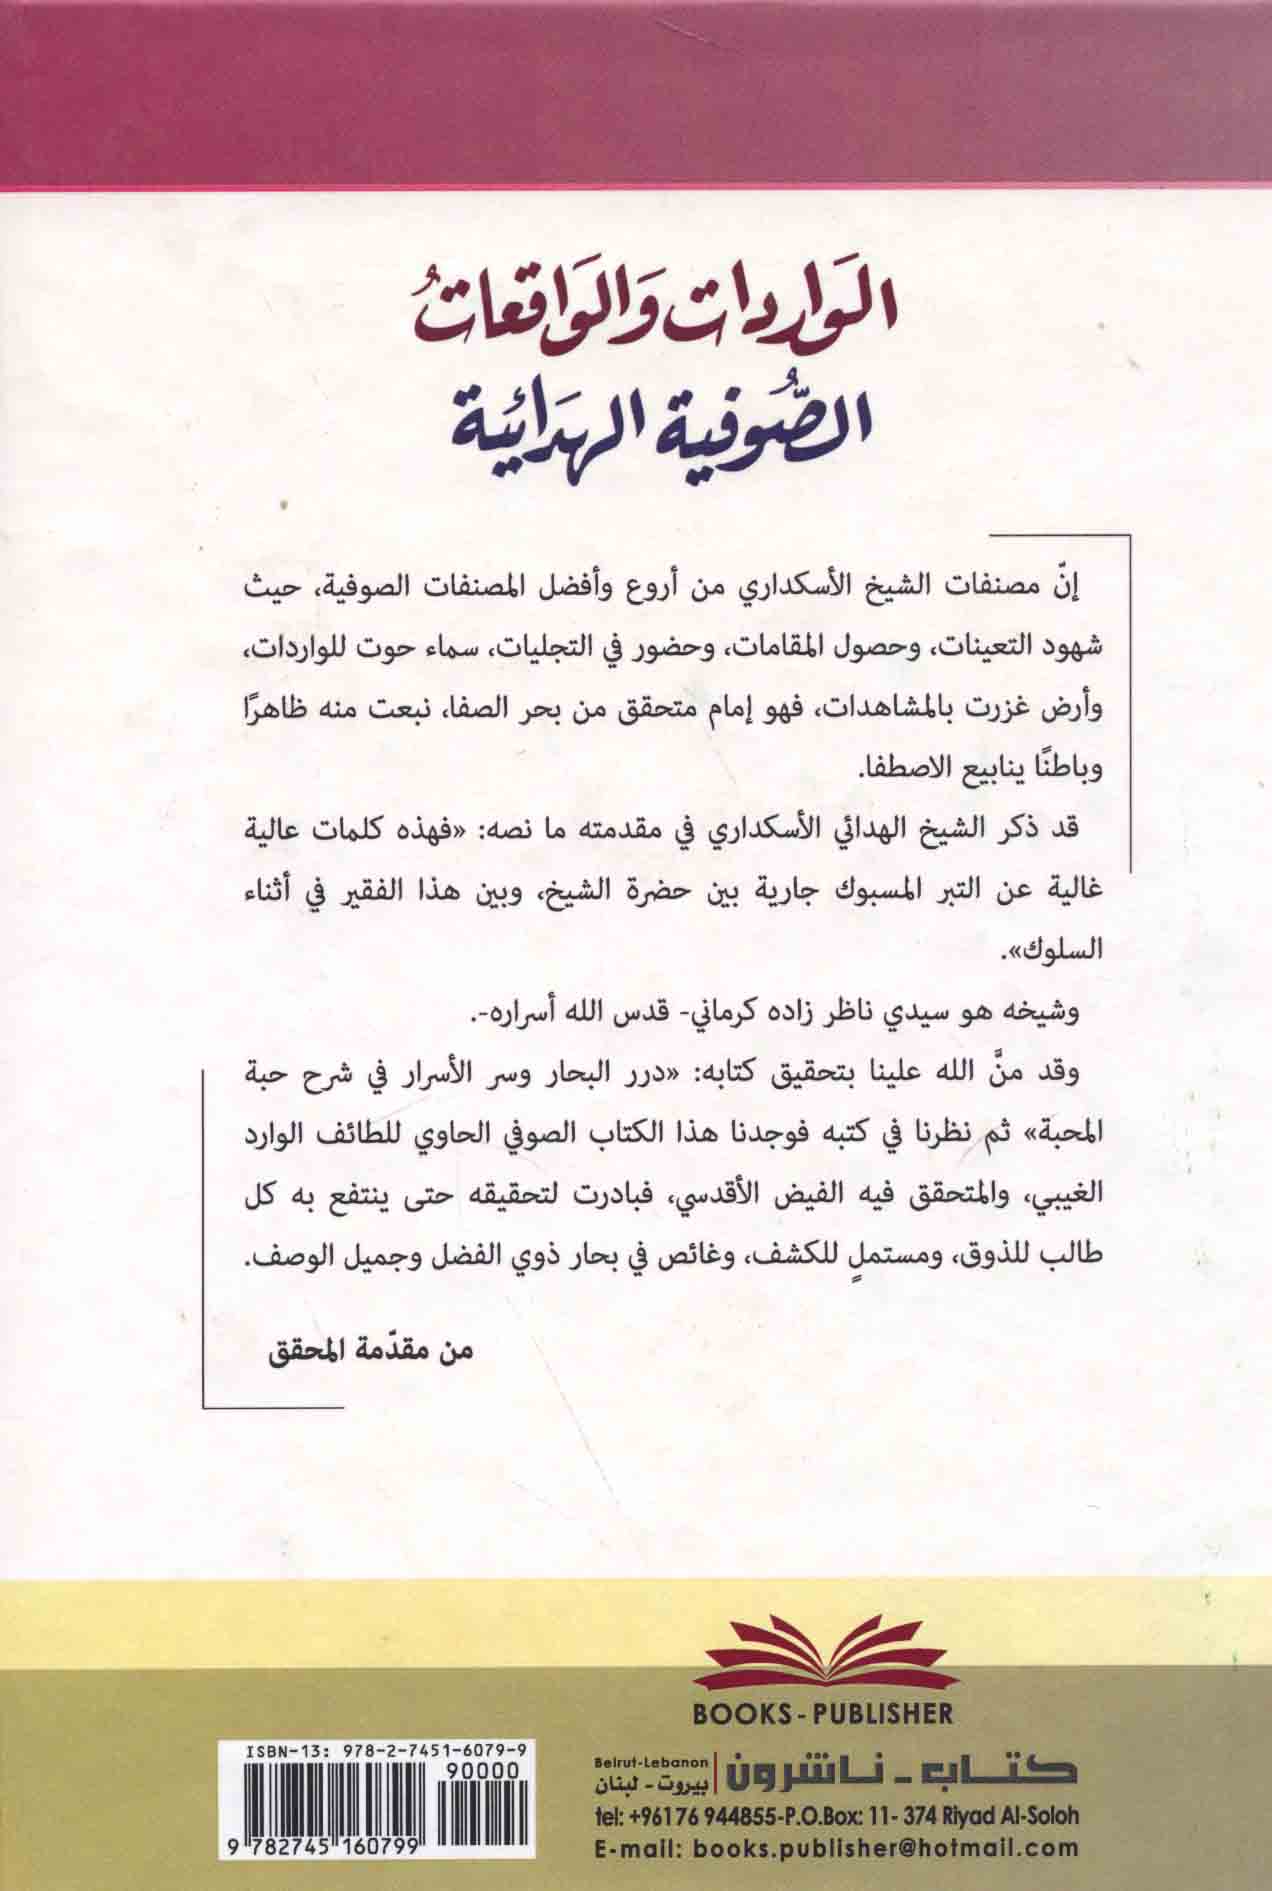 الوَاردات وَالوَاقعاتُ
الصُّوفية الهدَائية
إنّ مصنفات الشيخ الأسكداري من أروع وأفضل المصنفات الصوفية، حيث
شهود التعينات، وحصول المقامات، وحضور في التجليات، سماء حوت للواردات،
وأرض غزرت بالمشاهدات، فهو إمام متحقق من بحر الصفا، نبعت منه ظاهرًا
وباطنًا ينابيع الاصطفا.
قد ذكر الشيخ الهدائي الأسكداري في مقدمته ما نصه: «فهذه كلمات عالية
غالية عن التبر المسبوك جارية بين حضرة الشيخ، وبين هذا الفقير في أثناء
السلوك».
وشيخه هو سيدي ناظر زاده كرماني- قدس الله أسراره-.
وقد منَّ الله علينا بتحقيق كتابه: «درر البحار وسر الأسرار في شرح حبة
المحبة» ثم نظرنا في كتبه فوجدنا هذا الكتاب الصوفي الحاوي للطائف الوارد
الغيبي، والمتحقق فيه الفيض الأقدسي، فبادرت لتحقيقه حتى ينتفع به كل
طالب للذوق، ومستملٍ للكشف، وغائص في بحار ذوي الفضل وجميل الوصف.
من مقدّمة المحقق
BOOKS - PUBLISHER
كتاب - ناشرون
Beirut-Lebanon
بيروت - لبنان
tel: +961 76 944855-P.O.Box: 11- 374 Riyad Al-Soloh
E-mail: books.publisher@hotmail.com
ISBN-13: 978-2-7451-6079-9
90000
9 782745 160799